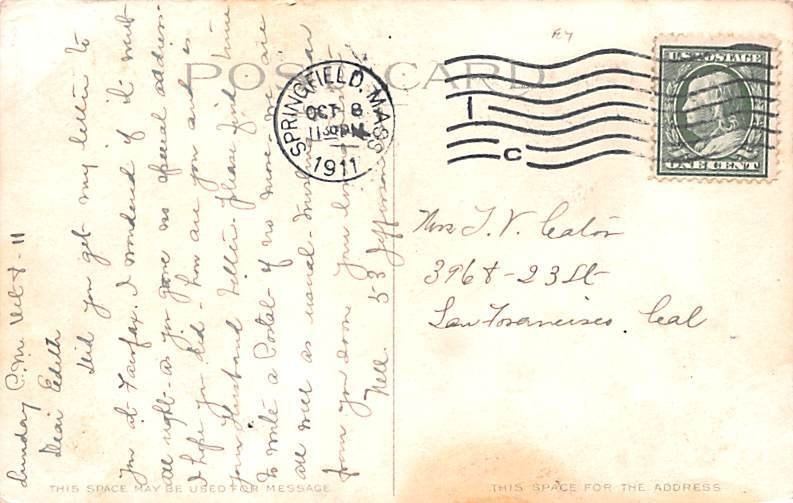 POST CARD
SPRINGFIELD, MASS.
OCT 8
11 30 PM
1911
1
C
U.S. POSTAGE
ONE CENT
Sunday P.M. Oct 8 - 11
Dear Edith
Did you get my letter to
you at Fairfax. I wondered if it went
all right - as you gave no special address.
I hope you did - how are you and is
your Husband better - Please find time
to write a Postal - if no more we are
all well as usual - must hear
from you soon your
Nell. 53 Jefferson
Mrs T. V. Eaton
3968 - 23 St
San Francisco. Cal
THIS SPACE MAY BE USED FOR MESSAGE
THIS SPACE FOR THE ADDRESS